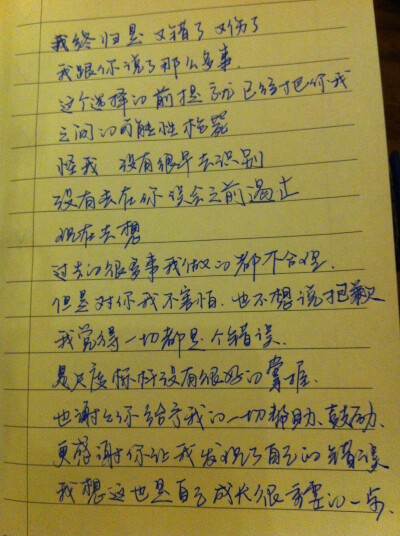 我终归是又错了 又伤了
我跟你说了那么多事
这个选择的前提 已经把你我
之间的可能性抢罢
怪我 没有很早去识别
没有去在你误会之前遏止
现在去想
过去的很多事我做的都不合理.
但是对你我不害怕.也不想说抱歉
我觉得一切都是个错误.
是尺度标杆没有很好的掌握.
也谢谢你给予我的一切帮助、鼓励.
更感谢你让我发现了自己的错误
我想这也是自己成长很重要的一点.